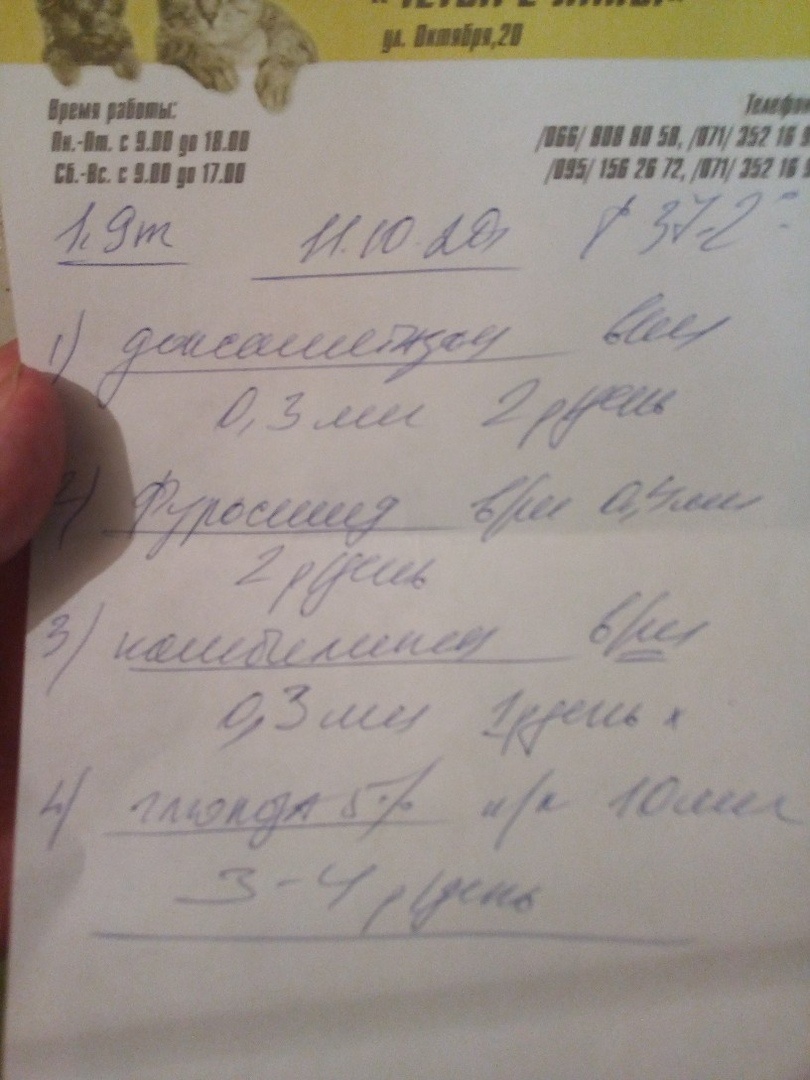 ул. Октября,20
Время работы: Телефон
Пн.-Пт. с 9.00 до 18.00 /066/ 808 80 50, /071/ 352 16 9
Сб.-Вс. с 9.00 до 17.00 /095/ 156 26 72, /071/ 352 16 9
11.10.20 37.2°
1) дексаметазон в/м
0,3 мл 2 р/день
2) Фуросемид в/м 0,4 мл
2 р/день
3) комбилипен в/м
0,3 мл 1 р/день
4) глюкоза 5% п/к 10 мл
3-4 р/день